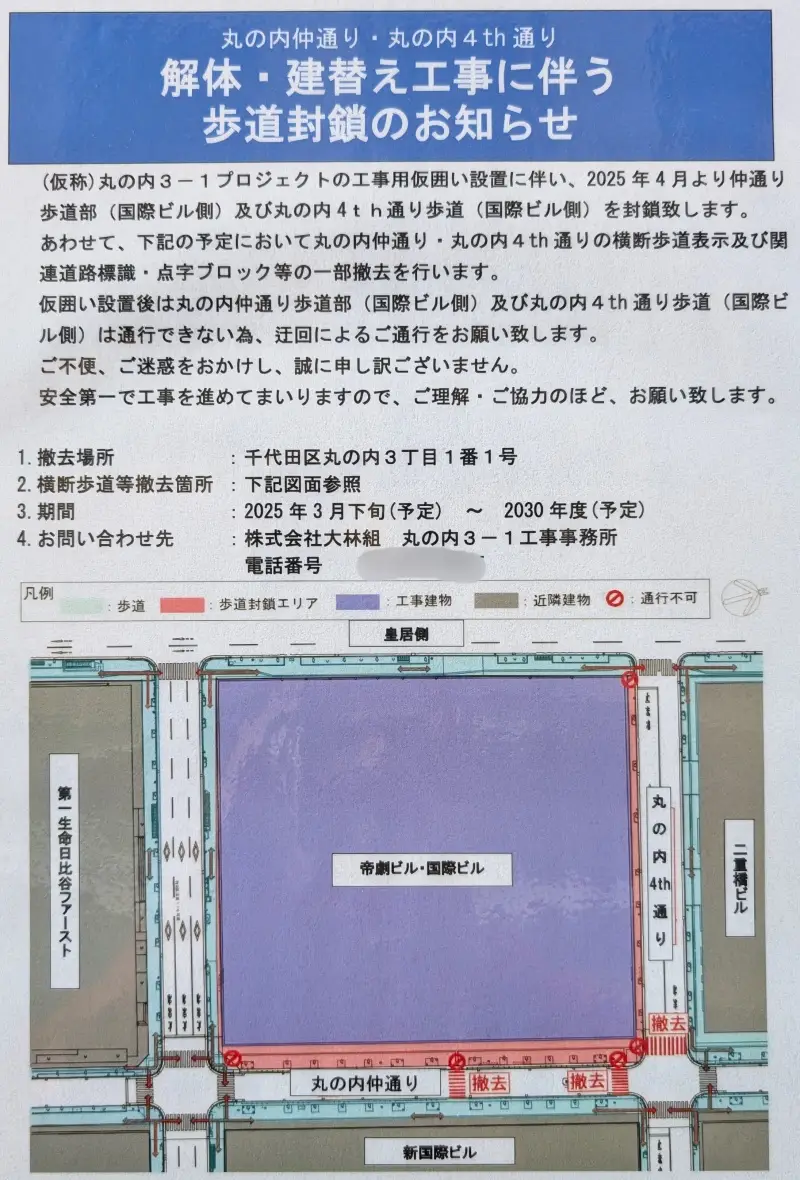 丸の内仲通り・丸の内4th通り
解体・建替え工事に伴う
歩道封鎖のお知らせ
(仮称)丸の内3－1プロジェクトの工事用仮囲い設置に伴い、2025年4月より仲通り
歩道部（国際ビル側）及び丸の内4th通り歩道（国際ビル側）を封鎖致します。
あわせて、下記の予定において丸の内仲通り・丸の内4th通りの横断歩道表示及び関
連道路標識・点字ブロック等の一部撤去を行います。
仮囲い設置後は丸の内仲通り歩道部（国際ビル側）及び丸の内4th通り歩道（国際ビ
ル側）は通行できない為、迂回によるご通行をお願い致します。
ご不便、ご迷惑をおかけし、誠に申し訳ございません。
安全第一で工事を進めてまいりますので、ご理解・ご協力のほど、お願い致します。
1.撤去場所 ：千代田区丸の内3丁目1番1号
2.横断歩道等撤去箇所 ：下記図面参照
3.期間 ：2025年3月下旬(予定) ～ 2030年度(予定)
4.お問い合わせ先 ：株式会社大林組 丸の内3－1工事事務所
電話番号
凡例 ：歩道 ：歩道封鎖エリア ：工事建物 ：近隣建物 ：通行不可
皇居側
第一生命日比谷ファースト
帝劇ビル・国際ビル
丸の内4th通り
二重橋ビル
撤去
丸の内仲通り
撤去
撤去
新国際ビル